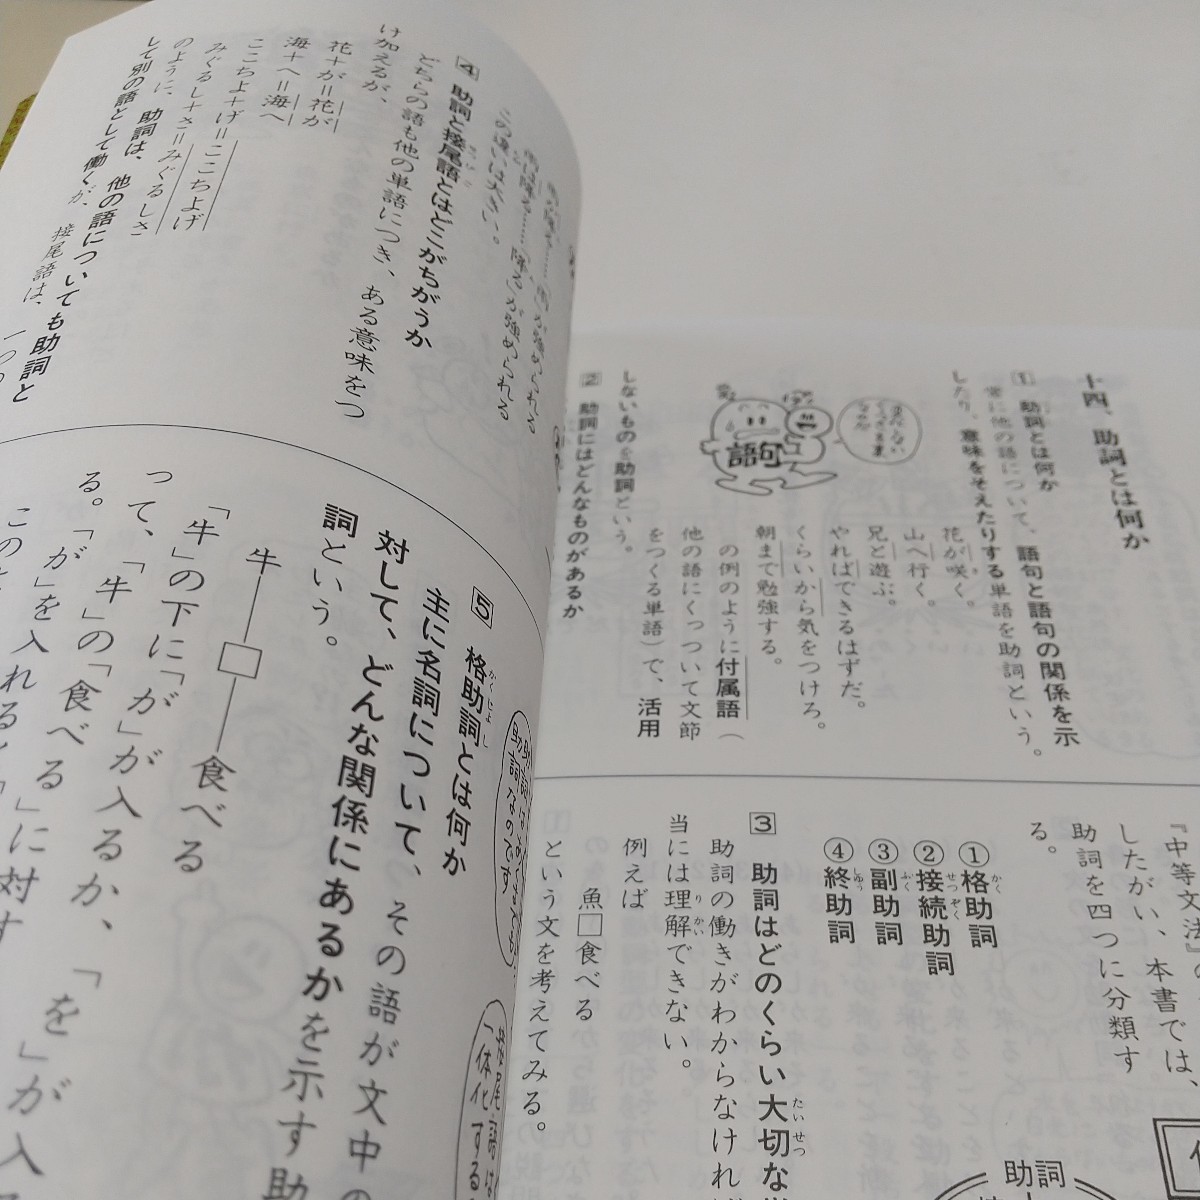 十四、助詞とは何か
1 助詞とは何か
常に他の語について、語句と語句の関係を示
したり、意味をそえたりする単語を助詞という。
花が咲く。
山へ行く。
兄と遊ぶ。
やればできるはずだ。
くらいから気をつけろ。
朝まで勉強する。
の例のように付属語（
他の語にくっついて文節
をつくる単語）で、活用
しないものを助詞という。
語句
2 助詞にはどんなものがあるか
『中等文法』の
したがい、本書では、
助詞を四つに分類す
る。
①格助詞
②接続助詞
③副助詞
④終助詞
3 助詞はどのくらい大切な
助詞の働きがわからなけれ
当には理解できない。
例えば
魚□食べる
という文を考えてみる。
助詞
この違いは大きい。
4 助詞と接尾語とはどこがちがうか
どちらの語も他の単語につき、ある意味をつ
け加えるが、
花＋が＝花が
海＋へ＝海へ
ここちよ＋げ＝ここちよげ
みぐるし＋さ＝みぐるしさ
のように、助詞は、他の語についても助詞と
して別の語として働くが、接尾語は、一つの
助詞なのです
接尾語は
一体化する
5 格助詞とは何か
主に名詞について、その語が文中の
対して、どんな関係にあるかを示す助
詞という。
牛□食べる
「牛」の下に「が」が入るか、「を」が入
って、「牛」の「食べる」に対す
る。「が」を入れると